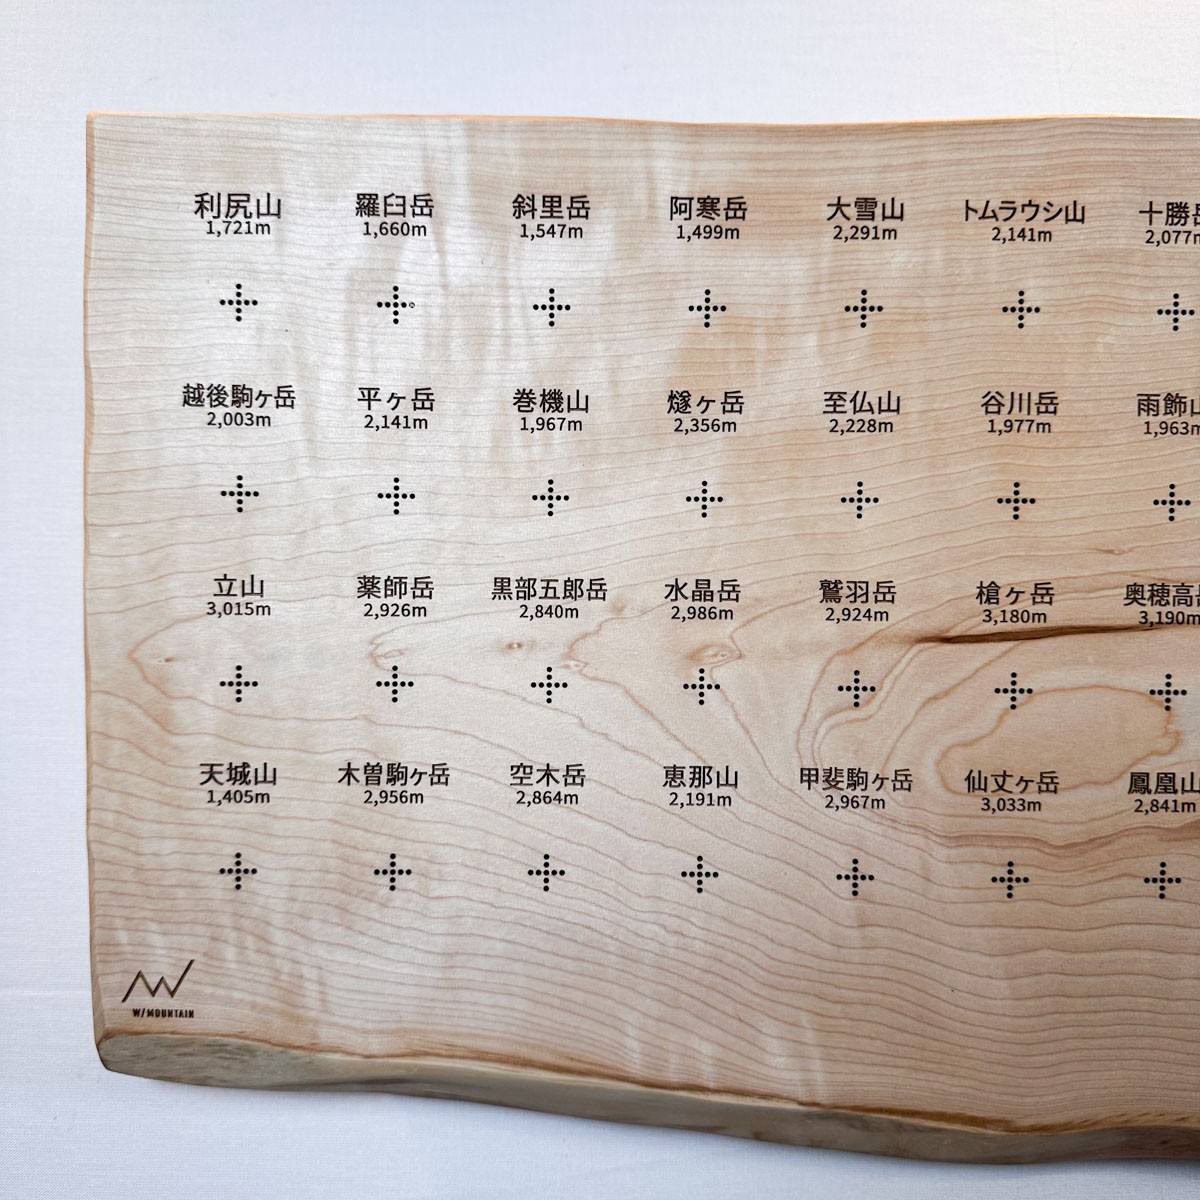 利尻山
1,721m
羅臼岳
1,660m
斜里岳
1,547m
阿寒岳
1,499m
大雪山
2,291m
トムラウシ山
2,141m
十勝岳
2,077m
越後駒ヶ岳
2,003m
平ヶ岳
2,141m
巻機山
1,967m
燧ヶ岳
2,356m
至仏山
2,228m
谷川岳
1,977m
雨飾山
1,963m
立山
3,015m
薬師岳
2,926m
黒部五郎岳
2,840m
水晶岳
2,986m
鷲羽岳
2,924m
槍ヶ岳
3,180m
奥穂高岳
3,190m
天城山
1,405m
木曽駒ヶ岳
2,956m
空木岳
2,864m
恵那山
2,191m
甲斐駒ヶ岳
2,967m
仙丈ヶ岳
3,033m
鳳凰山
2,841m
W/MOUNTAIN